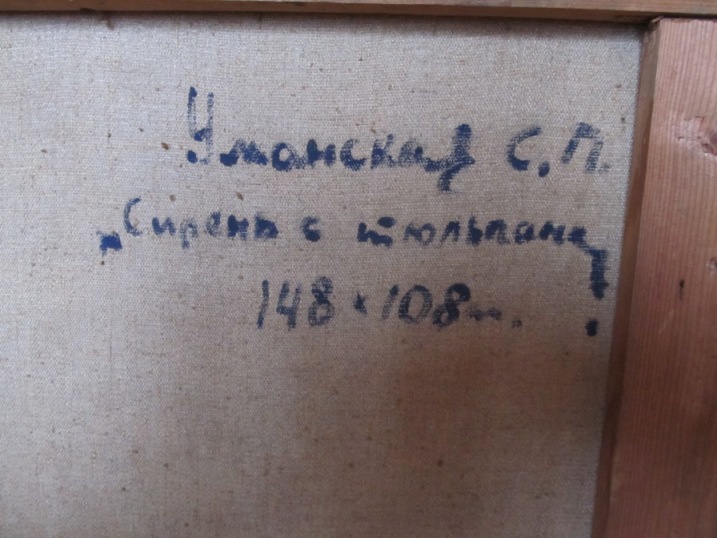 Уманская С.П.
„Сирень с тюльпана
148×108м.